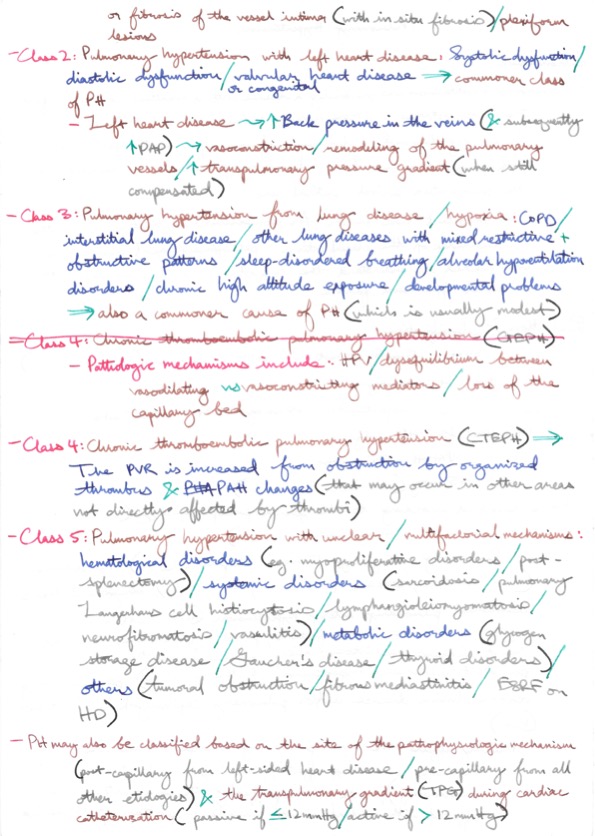 or fibrosis of the vessel intima (with in situ fibrosis)/plexiform
lesions
- Class 2: Pulmonary hypertension with left heart disease: Systolic dysfunction/
diastolic dysfunction/valvular heart disease ⇒ commoner class
or congenital
of PH
- Left heart disease ⇝ ↑ Back pressure in the veins (& subsequently
↑PAP) ⇝ vasoconstriction/remodeling of the pulmonary
vessels/↑ transpulmonary pressure gradient (when still
compensated)
- Class 3: Pulmonary hypertension from lung disease/hypoxia: COPD/
interstitial lung disease/other lung diseases with mixed restrictive +
obstructive patterns/sleep-disordered breathing/alveolar hypoventilation
disorders/chronic high altitude exposure/developmental problems
⇒ also a commoner cause of PH (which is usually modest)
- Class 4: Chronic thromboembolic pulmonary hypertension (CTEPH)
- Pathologic mechanisms include: HPV/dysequilibrium between
vasodilating vs vasoconstricting mediators/loss of the
capillary bed
- Class 4: Chronic thromboembolic pulmonary hypertension (CTEPH) ⇒
The PVR is increased from obstruction by organized
thrombus & PHA PAH changes (that may occur in other areas
not directly affected by thrombi)
- Class 5: Pulmonary hypertension with unclear/multifactorial mechanisms:
hematological disorders (eg: myoproliferative disorders/post-
splenectomy)/systemic disorders (sarcoidosis/pulmonary
Langerhans cell histiocytosis/lymphangioleiomyomatosis/
neurofibromatosis/vasculitis)/metabolic disorders (glycogen
storage disease/Gaucher's disease/thyroid disorders)/
others (tumoral obstruction/fibrous mediastinitis/ESRF on
HD)
- PH may also be classified based on the site of the pathophysiologic mechanism
(post-capillary from left-sided heart disease/pre-capillary from all
other etiologies) & the transpulmonary gradient (TPG) during cardiac
catheterization (passive if ≤12mmHg/active if >12mmHg)